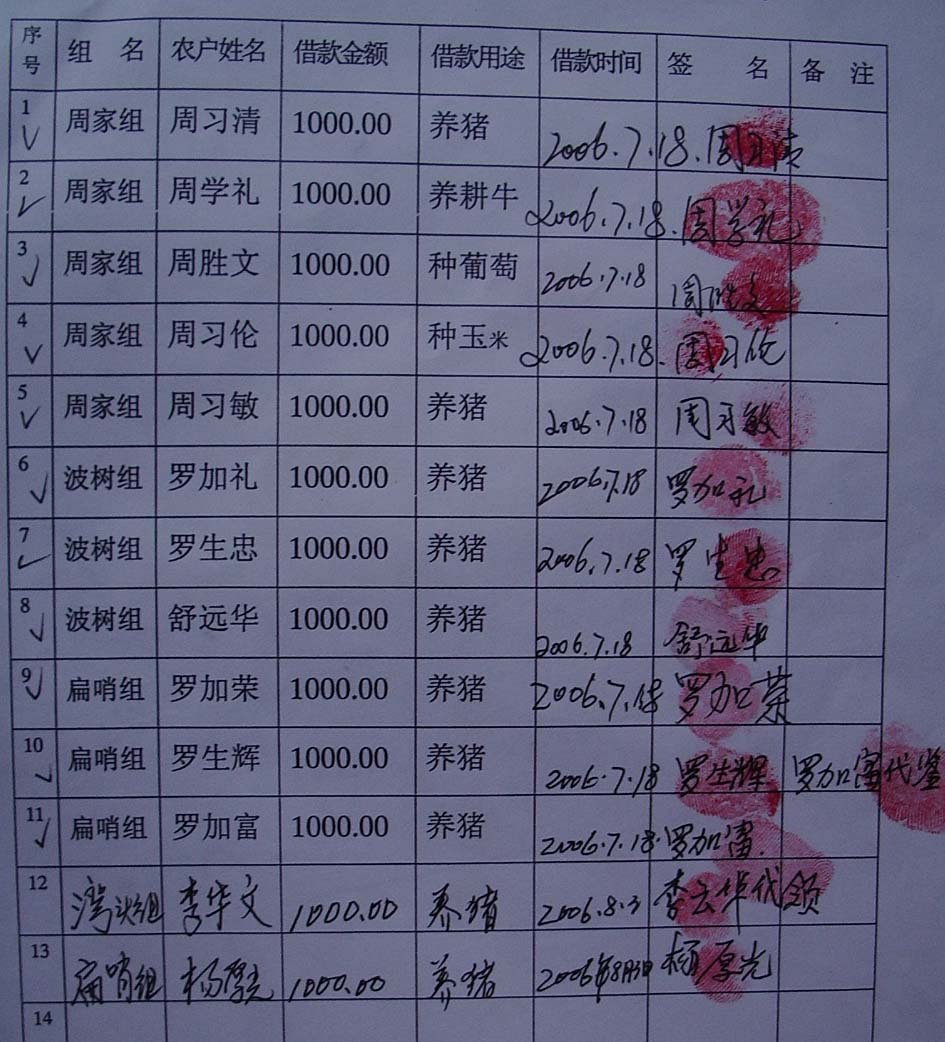 序号 组 名 农户姓名 借款金额 借款用途 借款时间 签 名 备 注
1 周家组 周习清 1000.00 养猪 2006.7.18. 周习清
2 周家组 周学礼 1000.00 养耕牛 2006.7.18. 周学礼
3 周家组 周胜文 1000.00 种葡萄 2006.7.18 周胜文
4 周家组 周习伦 1000.00 种玉米 2006.7.18. 周习伦
5 周家组 周习敏 1000.00 养猪 2006.7.18 周习敏
6 波树组 罗加礼 1000.00 养猪 2006.7.18 罗加礼
7 波树组 罗生忠 1000.00 养猪 2006.7.18 罗生忠
8 波树组 舒远华 1000.00 养猪 2006.7.18 舒远华
9 扁哨组 罗加荣 1000.00 养猪 2006.7.18 罗加荣
10 扁哨组 罗生辉 1000.00 养猪 2006.7.18 罗生辉 罗加富代鉴
11 扁哨组 罗加富 1000.00 养猪 2006.7.18. 罗加富.
12 湾头组 李华文 1000.00 养猪 2006.8.3 李云华代领
13 扁哨组 杨厚光 1000.00 养猪 2006年8月3日 杨厚光
14